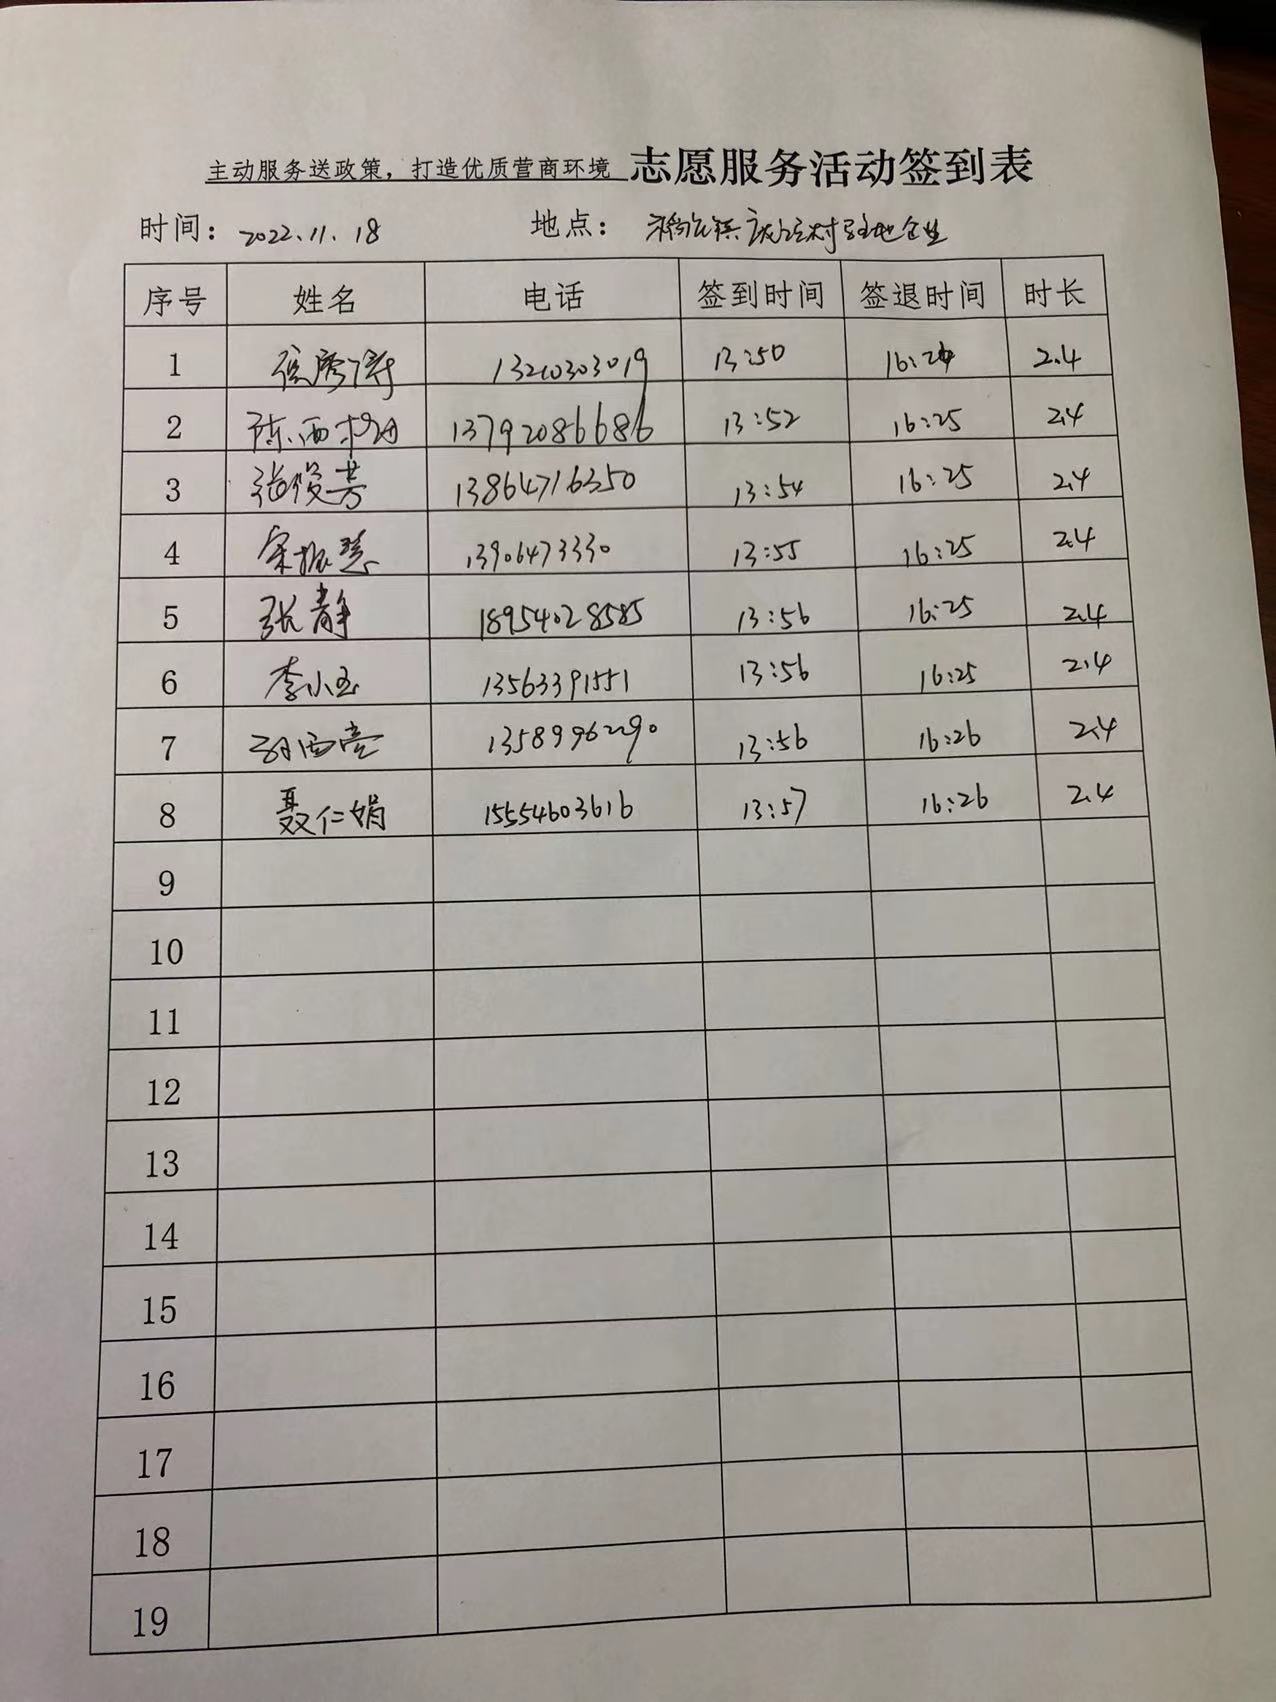 主动服务送政策，打造优质营商环境 志愿服务活动签到表
时间：2022.11.18 地点：村驻地企业
序号 姓名 电话 签到时间 签退时间 时长
1 13210303019 13:50 16:24 2.4
2 陈西 13792086686 13:52 16:25 2.4
3 张俊芳 13864716350 13:54 16:25 2.4
4 宋振慧 13906473330 13:55 16:25 2.4
5 张静 18954028585 13:56 16:25 2.4
6 李小玉 13563391551 13:56 16:25 2.4
7 胡西亮 13589996290 13:56 16:26 2.4
8 聂仁娟 15554603616 13:57 16:26 2.4
9
10
11
12
13
14
15
16
17
18
19